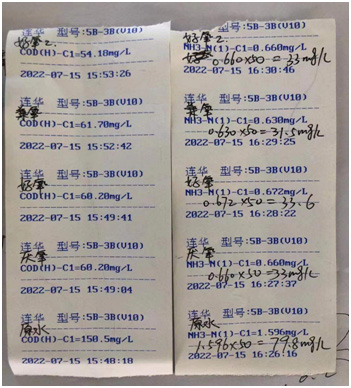 连华 型号:5B-3B(V10)
好氧2.
COD(H)-C1=54.18mg/L
2022-07-15 15:53:26
连华 型号:5B-3B(V10)
COD(H)-C1=61.70mg/L
2022-07-15 15:52:42
连华 型号:5B-3B(V10)
好氧
COD(H)-C1=60.20mg/L
2022-07-15 15:49:41
连华 型号:5B-3B(V10)
厌氧
COD(H)-C1=60.20mg/L
2022-07-15 15:49:04
连华 型号:5B-3B(V10)
原水
COD(H)-C1=150.5mg/L
2022-07-15 15:48:18
连华 型号:5B-3B(V10)
好氧2
NH3-N(1)-C1=0.660mg/L
0.660×50=33mg/L
2022-07-15 16:30:46
连华 型号:5B-3B(V10)
NH3-N(1)-C1=0.630mg/L
0.630×50=31.5mg/L
2022-07-15 16:29:25
连华 型号:5B-3B(V10)
好氧
NH3-N(1)-C1=0.672mg/L
0.672×50=33.6
2022-07-15 16:28:22
连华 型号:5B-3B(V10)
厌氧
NH3-N(1)-C1=0.660mg/L
0.660×50=33mg/L
2022-07-15 16:27:37
连华 型号:5B-3B(V10)
原水
NH3-N(1)-C1=1.596mg/L
1.596×50=79.8mg/L
2022-07-15 16:26:16